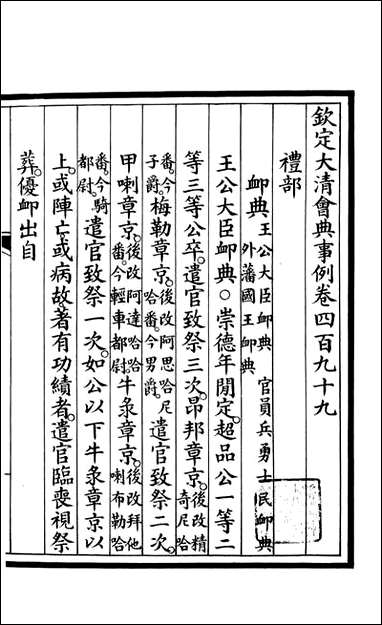 欽定大清會典事例卷四百九十九
禮部
卹典 王公大臣卹典 官員兵勇士民卹典
外藩國王卹典
王公大臣卹典○崇德年閒定。超品公一等二
等三等公卒。遣官致祭三次。昂邦章京。後改精
奇尼哈
番。今
子爵。梅勒章京。後改阿思哈尼
哈番。今男爵。遣官致祭二次。
甲喇章京。後改阿達哈哈
番。今輕車都尉。牛彔章京。後改拜他
喇布勒哈
番。今騎
都尉。遣官致祭一次。如公以下牛彔章京以
上。或陣亡或病故。著有功績者。遣官臨喪視祭
葬。優卹出自